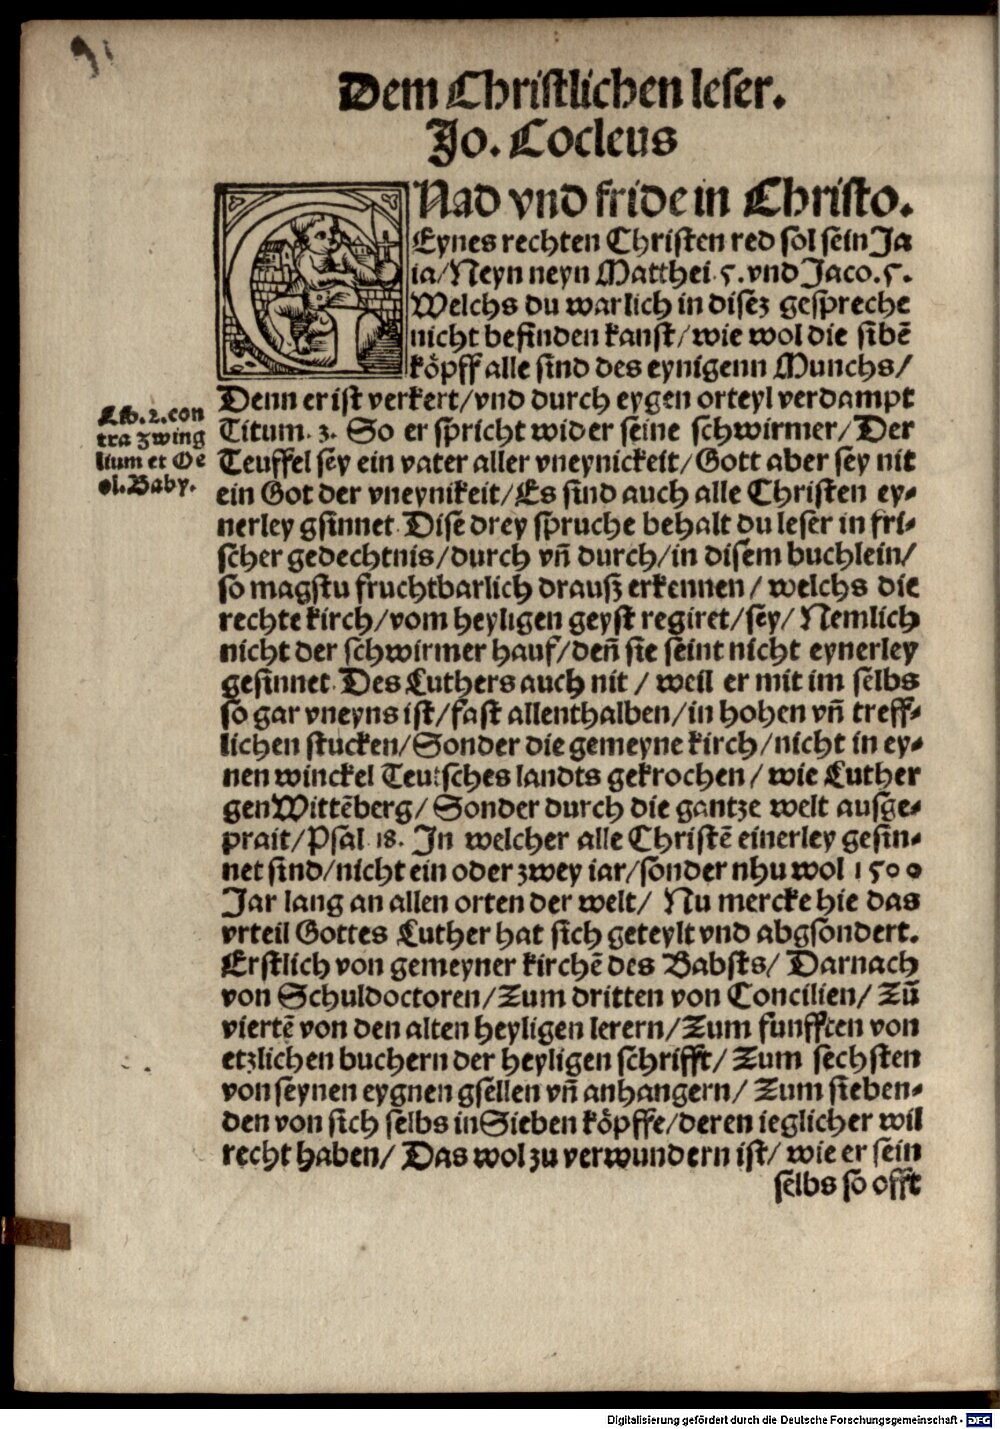 Dem Christlichen leser.
Jo. Cocleus
GNad vnd fride in Christo.
Eynes rechten Christen red sol sein Ja
ia/Neyn neyn Matthei 5. vnd Jaco. 5.
Welchs du warlich in disez gespreche
nicht befinden kanst/wie wol die sibē
kȯpff alle sind des eynigenn Munchs/
Denn er ist verkert/vnd durch eygen orteyl verdampt
Titum. 3. So er spricht wider seine schwirmer/Der
Teuffel sey ein vater aller vneynickeit/Gott aber sey nit
ein Got der vneynikeit/Es sind auch alle Christen ey-
nerley gsinnet. Dise drey spruche behalt du leser in fri-
scher gedechtnis/durch vn̄ durch/in disem buchlein/
so magstu fruchtbarlich drausz erkennen/ welchs die
rechte kirch/vom heyligen geyst regiret/sey/ Nemlich
nicht der schwirmer hauf/den̄ sie seint nicht eynerley
gesinnet. Des Luthers auch nit / weil er mit im selbs
so gar vneyns ist/fast allenthalben/in hohen vn̄ treff-
lichen stucken/Sonder die gemeyne kirch/nicht in ey-
nen winckel Teutsches landts gekrochen/ wie Luther
gen Wittēberg/ Sonder durch die gantze welt ausge-
prait/Psal. 18. In welcher alle Christē einerley gesin-
net sind/nicht ein oder zwey iar/sonder nhu wol 1500
Jar lang an allen orten der welt/ Nu mercke hie das
vrteil Gottes Luther hat sich geteylt vnd abgsondert.
Erstlich von gemeyner kirchē des Babsts/ Darnach
von Schuldoctoren/Zum dritten von Concilien/ Zū
viertē von den alten heyligen lerern/Zum funfften von
etzlichen buchern der heyligen schrifft/ Zum sechsten
von seynen eygnen gsellen vn̄ anhangern/ Zum sieben-
den von sich selbs in Sieben kȯpffe/deren ieglicher wil
recht haben/ Das wol zu verwundern ist/ wie er sein
selbs so offt
Lib. 2. con
tra zwing
lium et Oe
ol. Baby.
Digitalisierung gefördert durch die Deutsche Forschungsgemeinschaft - DFG